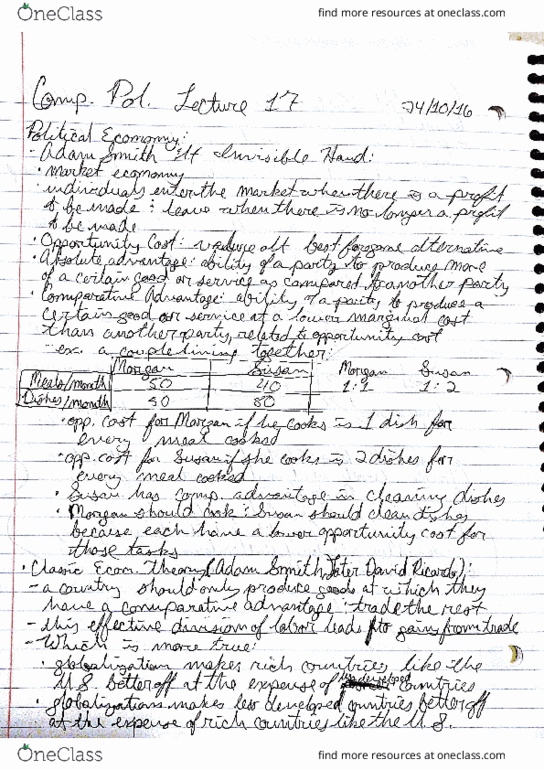 OneClass
find more resources at oneclass.com
Comp. Pol. Lecture 17
24/10/16
Political Economy:
- Adam Smith Invisible Hand:
· market economy
· individuals enter the market when there is a profit
to be made & leave when there is no longer a profit
to be made
· Opportunity Cost: best forgone alternative
· Absolute advantage: ability of a party to produce more
of a certain good or service as compared to another party
· Comparative Advantage: ability of a party to produce a
certain good or service at a lower marginal cost
than another party, related to opportunity cost
ex. a couple living together:
Morgan Susan Morgan Susan
Meals/month 50 40 1:1 1:2
Dishes/month 50 80
· opp. cost for Morgan if he cooks is 1 dish for
every meal cooked
· opp. cost for Susan if she cooks is 2 dishes for
every meal cooked
· Susan has comp. advantage in cleaning dishes
· Morgan should cook & Susan should clean dishes
because each have a lower opportunity cost for
those tasks
· Classic Econ. Theory (Adam Smith, later David Ricardo):
- a country should only produce goods at which they
have a comparative advantage & trade the rest
- this effective division of labor leads to gains from trade
- Which is more true:
· globalization makes rich countries like the
U.S. better off at the expense of less developed countries
· globalizations makes less developed countries better off
at the expense of rich countries like the U.S.
OneClass
find more resources at oneclass.com